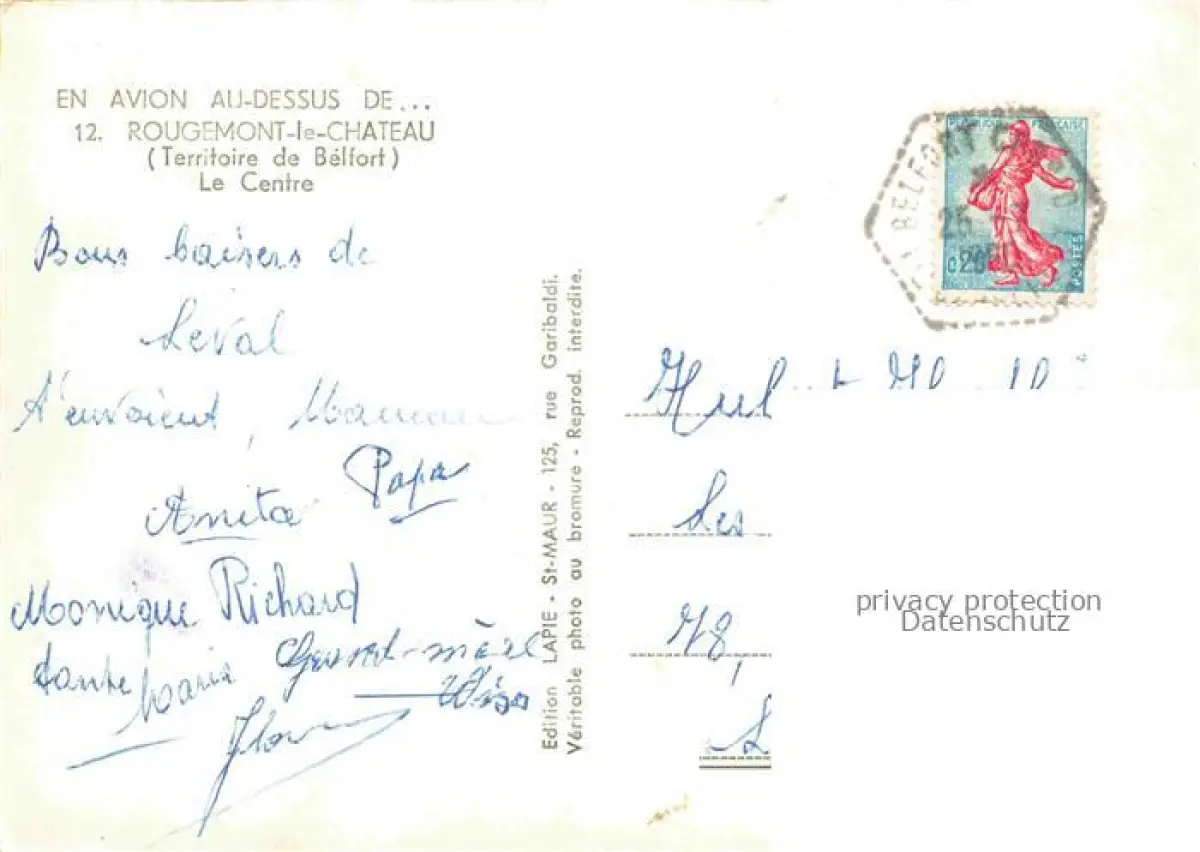 EN AVION AU-DESSUS DE...
12. ROUGEMONT-le-CHATEAU
(Territoire de Bélfort)
Le Centre
Bons baisers de
Leval
t'envoient, Maman
Papa
Anita
Monique Richard
tante Maria
Edition LAPIE - St-MAUR - 125, rue Garibaldi.
Véritable photo au bromure - Reprod. interdite.
REPUBLIQUE FRANÇAISE
BELFORT
25
0,20
POSTES
Les
78,
privacy protection
Datenschutz